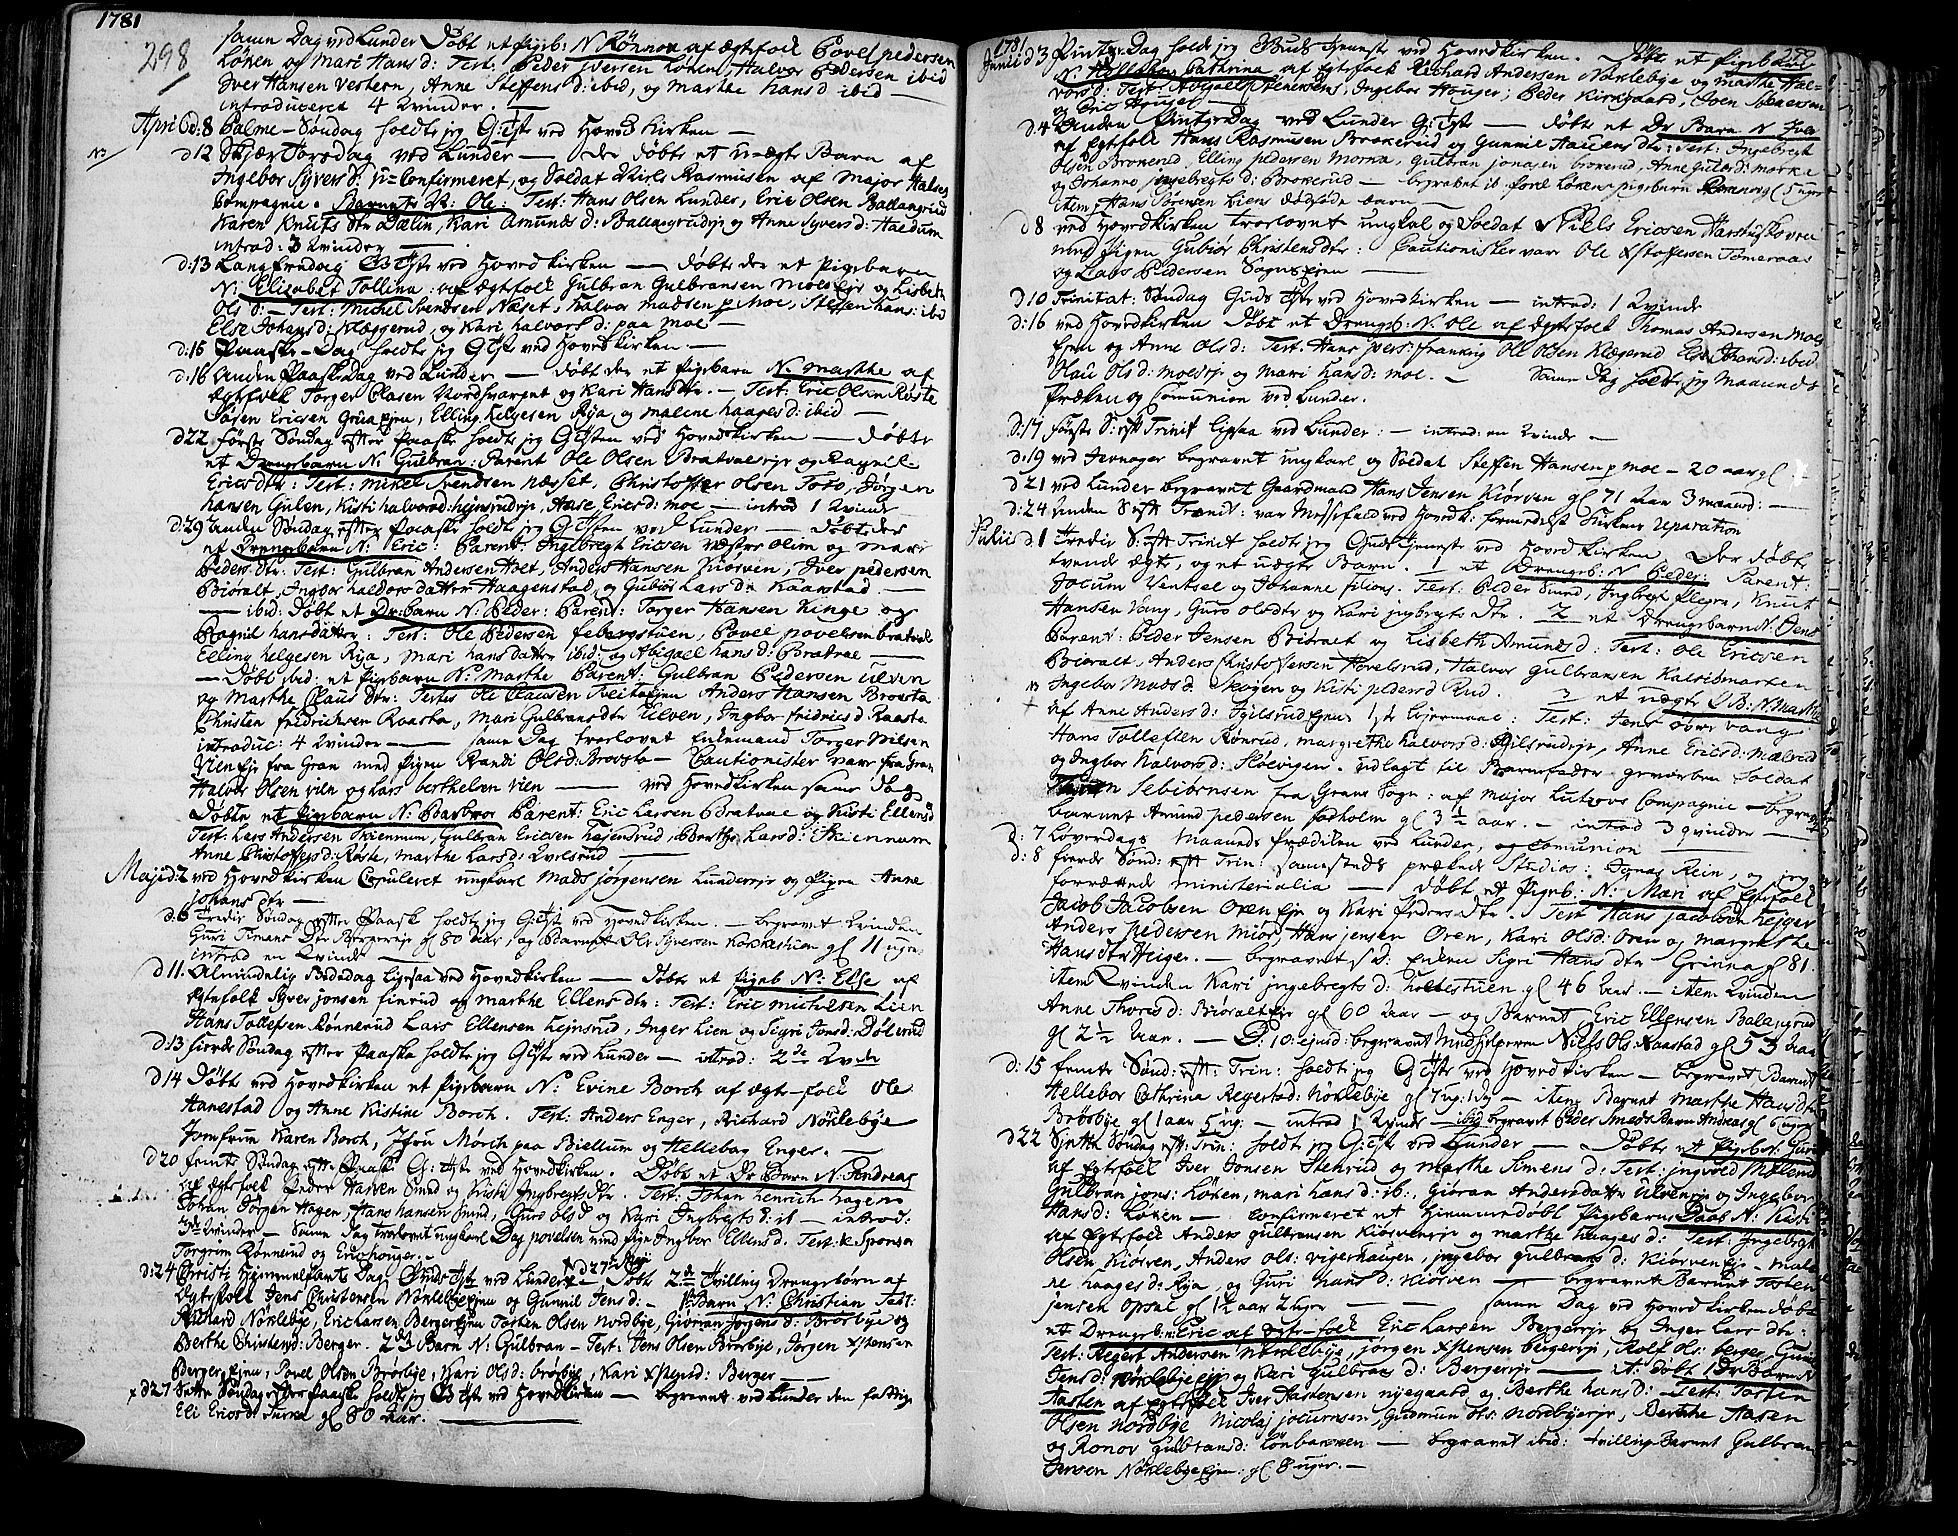 1781
298
samme Dag ved Lunder Døbt et pigeb: N. Rönnov af ægtefolk Povel pedersen
Löken og Mari Hans d: Test: Peder Iversen Löken, Halvor Pedersen ibid
Iver Hansen Vestern, Anne Steffens d: ibid, og Marthe hans d ibid —
introduceret 4 Qvinder. —
April d: 8 Palme-Søndag holdte jeg G: Tiste ved Hoved Kirken —
d 12 Skjær Torsdag ved Lunder — der døbte et U-ægte Barn af
Ingebor Syvers d: U-Confirmeret, og Soldat Niels Rasmusen af Major
Compagnie. Barnets N: Ole: Test: Hans Olsen Lunder, Eric Olsen Ballangrud
Karen Knuts Dtr Dælin, Kari Amunds d: Ballangrudejr og Anne Syvers d: Haedum
introd: 3 Qvinder —
d: 13 Langfredag ved Hoved Kirken — døbte der et Pigebarn
N: Elisabet Tollina: af ægtefolk Gulbran Gulbransen Moe Ejr og Lisbeth
Ols d: — Test: Michel Svendsen Næset, Halvor Madsen p Moe, Steffen hans: ibid
Else Johans d: Klæggerud, og Kari halvors d: paa Moe —
d: 15 Paaske-Dag holdte jeg G: Tiste ved Hoved Kirken —
d: 16 Anden Paaske Dag ved Lunder — døbt der et Pigebarn N. marthe af
ægtefolk Torger Olasen Nordhvarvet og Kari Hans dtr. — Test: Eric Olsen Røste
Ericsen Grua Ejen, Elling Helgesen Rya, og malene haages d: ibid —
d 22 første Søndag efter Paaske holdte jeg G: Tisten ved Hoved Kirken — døbte
et Drengebarn N: Gulbran: Parent Ole Olsen Bratvalejr og Ragnile
Erics dtr: Test: Mikel Svendsen Næsset, Christoffer Olsen Toso, Jørgen
hansen Gulen, Kisti halvors d: hejnsrudejr, Aase Erics d: moe — introd 1 Qvinde
d: 29 Anden Søndag efter Paaske holdt jeg G: Tisten ved Lunder — Døbte der
et Drengebarn N: Eric: Parent: Ingebregt Ericsen Væstre olim og Mari
Peders dtr: Test: Gulbran Andersen Hoet, Anders Hansen Kiørven, Iver pedersen
Biöralt, Ingebor haldors datter Haagenstad, og Gubiör Lars d: Kaarstad —
— ibid: Døbt et Dr: barn N: Peder: Parent: Torger Hansen Ringe og
Ragnil hansdatter: Test: Ole Pedersen febergstuen, Povel povelsen bratvale
Elling helgesen Rya, Mari hansdatter ibid: og Abigael hans d: Bratvae —
— Døbt ibid: et Pigebarn N: Marthe Parent: Gulbran Pedersen Ulven
og Marthe Claus dtr: Testes Ole Clausen Tveitaejen Anders Hansen Brovsta
Christen fridrichsen Raasta, Mari Gulbransdtr Ulven, Ingbor fridrics d Raasta
introduc: 4 Qvinder — samme Dag trolovet Enkemand Torger Nilsen
Vien Ejr fra Gran med Pigen Randi Ols d: Brovsta — Cautionister vare fra Gran
Halvor Olsen vien og Lars berthelsen vien — ved Hovedkirken samme Dag
Døbte et Pigebarn N: Barbroe Parent: Eric Larsen Bratvae og Kisti Ellens d
Test: Lars Andersen Skiennum, Gulbran Ericsen Hejensrud, Berthe Lars d: Skiennum
Anne Christoffers d: Røste, Marthe Lars d: Qvelsrud —
Maji d: 2 ved Hovedkirken Copuleret ungkarl Mads jørgensen Lunderejr og Pigen Anne
Johans dtr —
d: 6 Tredie Søndag efter Paaske holdt jeg G: Tiste ved Hovedkirken. — begravet Qvinden
Guri Simens Dtr Bergerejr gl 80 Aar, og Barnet Ole Syversen Kokkestuen gl 11 uger
introd en Qvinde —
d 11. Almindelig Bededag Ligesaa ved Hovedkirken — Døbt et Pigeb N: Else af
Egtefolk Syver jonsen finrud og Marthe Ellens dtr: Test: Eric Michelsen Lien
Hans Tollefsen Rønnerud Lars Ellensen hejnsrud, Inger Lien og Sigri Jons d: Dølerud
d: 13 fierde Søndag efter Paaske holdte jeg G: Tiste ved Lunder — introd: 2de Qvinder
d 14 Døbt ved Hovedkirken et Pigebarn N: Evine Borch af ægt-folk Ole
Hanestad og Anne Kistine Borch. Test: Anders Enger, Richard Nöklebye
Jomfrum Karen Borch, Mørch paa Biellum og Hellebog Enger. —
d 20 femte Søndag efter Paaske G: Tiste ved Hovedkirken. Døbt et Dr Barn N: Andreas
af ægtefolk Peder Hansen Smed og Kristi Ingbregts Dtr. Test: Johan Henrich hagen
Johan Jørgen Hagen, Hans hansen smed, Guro ols d og Kari Ingbregts d: it — introd:
3de Qvinder — Samme Dag trolovet ungkarl Dag povelsen med Pige Ingbor Ellens d. Test: & Sponsor
Torgrim Rønnerud og Eric houger. —
d: 24 Christi Himmelfarts Dag, Guds Tiste ved Lunder — N d 27de Maji Døbt 2de Tvilling Drengebørn af
Egtefolk Jens Christensen Nöklebye Ejen og Gunnil Jens d: — 1te Barn N: Christian Test:
Richard Nöklebye, Eric Larsen Berger Ejen Torsten Olsen Nordbye, Giöran Jorgens d: Brørbye og
Berthe Christens d: Berger. 2det Barn N: Gulbran — Test: Jens Olsen Brørbye, Jørgen Xstensen
Berger Ejen, Povel Olsen Brørbye, Kari Ols d: brørbye, Kari Xstens d: Berger —
x d 27 Siette Søndag efter Paaske holdt jeg G: Tiste ved Hovedkirken — begravet ved Lunder den fattige
Eli Erics d: gl 80 Aar. —
1781
299
Junii d 3 Pintse Dag holdt jeg Gudstjeneste ved Hovedkirken. Døbt et Pigebarn
N. Hellebor Cathrina af Egtefolk Richard Andersen Nøklebye og Marthe Hal-
vors d: Test: Abigael Stenersens, Ingebor Houger, Peder Kirkgaard, Joen Stenersen
og Eric Houger —
d. 4 Anden Pintse Dag ved Lunder G: Tiste — døbte et Dr Barn N Iver
af Egtefolk Hans Rasmusen Brokerud og Gunnil Hauens dtr: Test: Ingebregt
Olsen Brokerud, Elling pedersen Morna, Gulbran jonasen brokerud, Anne Gulbr d: morke
og Johanne jngebregts d: Brokerud — begravet ib Povel Lökens pigebarn Rönnov gl 5 uger
item Hans Sörensen Liens dødføde barn —
d 8 ved Hovedkirken trolovet ungkal og Soldat Niels Ericsen
med Pigen Gubiör Christens dtr: Cautionister vare Ole Xstoffersen Tömeraas
og Lars Pedersen Sognsejen —
d 10 Trinitat: Søndag Guds Tiste ved Hovedkirken — introd: 1 Qvinde
d: 16 ved Hovedkirken Döbt et Drengeb: N. Ole af ægtefolk Thomas Andersen Moe
Ejen og Anne Ols d: Test: Hans pers: frankrig Ole Olsen Klægerud Else Johans d: ibid
Olau Ols d: moe Ejr og Mari hans d: moe. — Samme Dag holdt jeg Maaneds
Præken og Comunion ved Lunder.
d: 17 første S: eft Trinit ligesaa ved Lunder: — introd: en Qvinde —
d: 19 ved Jevnager begravet ungkarl og Soldat Steffen Hansen p moe — 20 aar gl
d 21 ved Lunder begravet Gaardmand Hans Jensen Kiörven gl 71 Aar 3 maaned: —
d: 24 Anden S eft Trinit: var Messefald ved Hovedk: formedelst Kirkens reparation
Julii d 1 Tredie S: eft Trinit holdte jeg Guds tjeneste ved Hovedkirken Der døbte
tvende ægte, og et uægte Barn. 1 et Drengeb: N Peder: Parent:
Jocum Ventsel og Johanne filions. Test: Peder Smed, Ingbregt Plegn, Knut
Hansen Vang, Guro Olsdtr og Kari jngbregts Dtr. 2 et Drengebarn N: Jens
Parent: Peder Jensen Biöralt og Lisbeth Amunds d: Test: Ole Ericsen
Biöralt, Anders Christoffersen Hovelsrud, Halvor Gulbransen
Ingebor Mads d. Skogen og Kisti peders d Rud. 3 et uægte P. B: N. Marthe
af Anne Anders d: Igilsrud Ejens 1ste Lejermaal: Test: Jens övre vang
Hans Tollefsen Rønrud, Margrethe halvors d: Igilsrudejr, Anne Erics d: Mælrud
og Ingbor Halvors d: Slövigen. udlagt til Barnefader gevorben Soldat
Sebiörnsen fra Grans Sogn: af Major Lutzovs Compagnie — begravet
barnet Amund pedersen Faxholm gl 3 1/2 aar. — introd 3 qvinder —
d: 7 Löverdags Maaneds prædiken ved Lunder, og Comunion —
d: 8 fierde Sønd: eft Trin: sammesteds prækede Studios: Jonas Rein, og jeg
forrettede ministerialia — døbt et Pigeb: N: Mari af Egtefolk
Jacob Jacobsen Oren Ejr og Kari Peders Dtr. Test Hans jacobsen Hejger
Anders pedersen Mioe, Hans jensen Oren, Kari Ols d: Oren og Margrethe
Hans dtr Heiger. — begravet s: D: Enken Sigri Hans dtr Grinna gl 81.
item Qvinden Kari jngebregts d: holtestuen gl 46 Aar. — item Qvinden
Anne Thores d: Biöralt Ejr gl 60 Aar — og Barnet Eric Ellensen Balangrud
gl 2 1/2 Aar. — D. 10 ejusd: begravet Medhjelperen Niels Ols: Kaastad gl 53 Aar
d: 15 femte Sønd: eft: Trin: holdt jeg G: Tiste ved Hovedkirken — begravet Barnet
Hellebor Cathrina Regerstad: Nöklebye gl 7 ug: 1 Dg — item Barnet Marthe Hans dtr
Brörbye gl 1 aar 5 ug: — introd 1 Qvinde — ibid begravet Peder Smeds Barn Andreas gl 6 uger
d 22 Siette Søndag eft: Trin: holdt jeg G: Tiste ved Lunder — Døbt et Pigeb: Guri
af Egtefolk Iver Jonsen Stenrud og Marthe Simens d: Test: jngvold Mælrud
Gulbran jons: Löken, Mari hans d: ib:, Giöran Andersdatter Ulven Ejr og Ingebor
Hans d: Löken — Confirmeret et Hiemmedøbt Pigebarns Daab N: Kisti
af Egtefolk Anders Gulbransen Kiörvenejr og Marthe haages d: Test: Ingebregt
Olsen Kiörven, Anders Ols: vigerhaugen, jngebor Gulbrans d: Kiörven Ejr — Male-
ne haages d: Rya, og Guri hans d: Kiörven — begravet Barnet Torsten
jensen Opsal gl 1 1/2 aar 2 uger — samme Dag ved Hovedkirken döbt
et Drengeb: Eric af Egte-folk Eric Larsen Bergerejr og Inger Lars dtr:
Test: Regert Andersen Nöklebye, jørgen Xstensen bergerejr, Rolf Ols: berger,
Jens d: Nöklebye Ejr og Kari Gulbrans d: Bergerejr — It: døbt 1 Dr Barn N:
Hasten af Egtefolk Iver Hastensen nyegaard og Berthe hans d: Test: Torsten
Olsen Nordbye Nicolaj jocumsen, Gudmun Ols: Nordbyeejr, Berthe Aasen
og Ronov Gulbrans d: Lønbakken — begravet ibid: tvilling Barnet Gulbran
Jensen Nöklebye Ejen: gl 8 uger. —